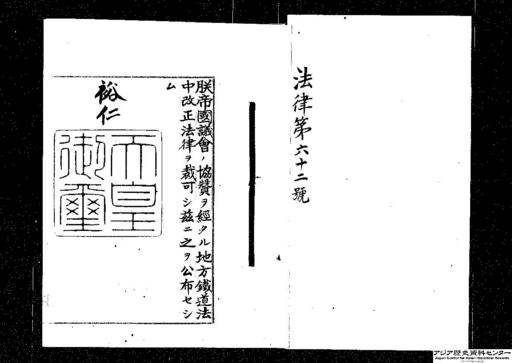 法律第六十二號
朕帝國議會ノ協贊ヲ經タル地方鐵道法
中改正法律ヲ裁可シ茲ニ之ヲ公布セシ
ム
裕仁
天皇
御璽
アジア歴史資料センター
Japan Center for Asian Historical Records